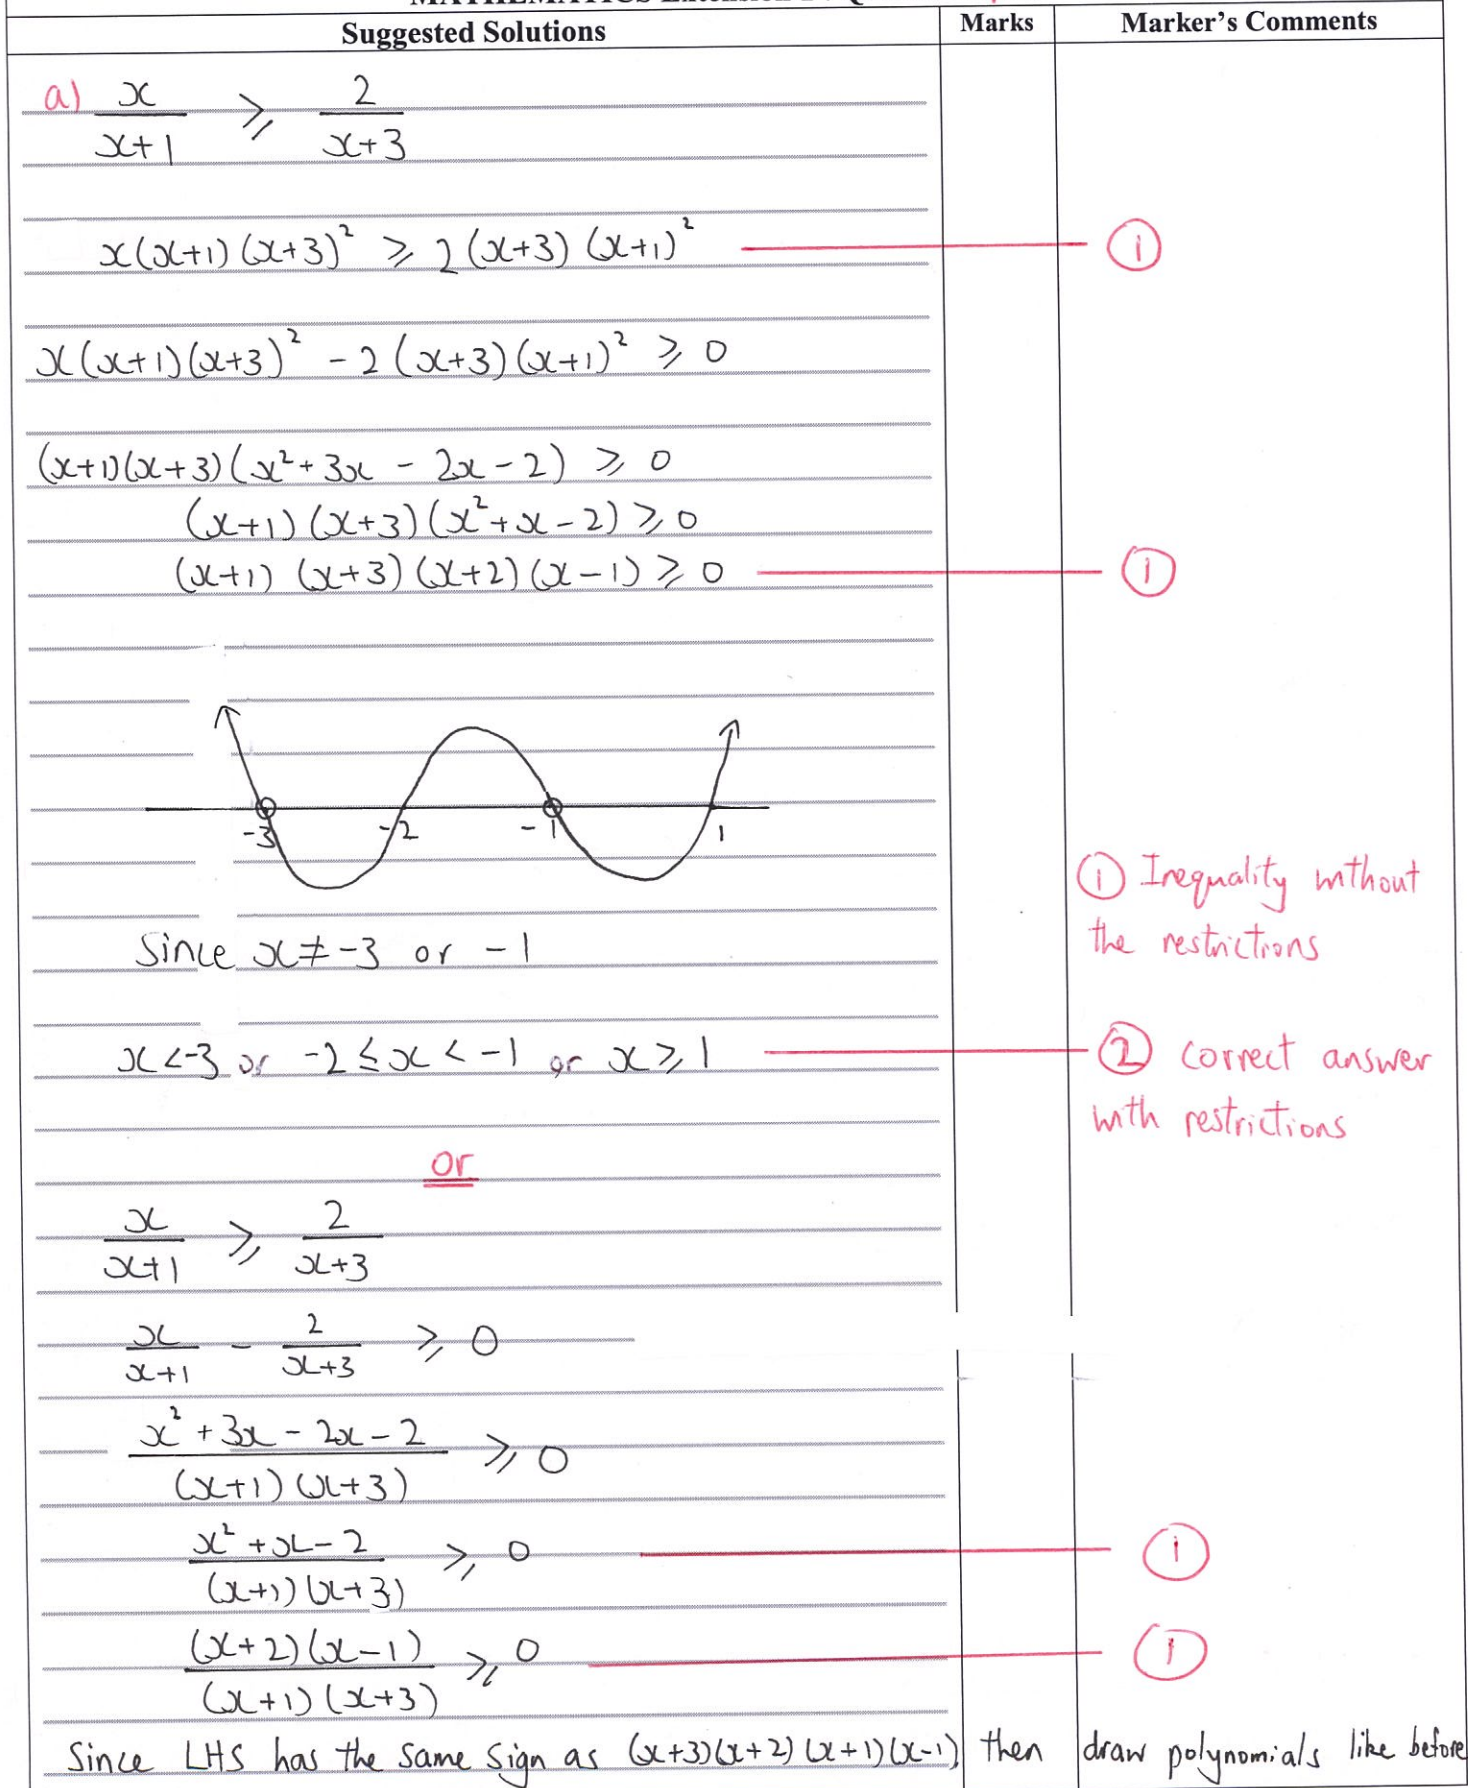 Suggested Solutions Marks Marker's Comments
a) x/(x+1) ⩾ 2/(x+3)
x(x+1)(x+3)² ⩾ 2(x+3)(x+1)² ①
x(x+1)(x+3)² - 2(x+3)(x+1)² ⩾ 0
(x+1)(x+3)(x²+3x - 2x-2) ⩾ 0
(x+1)(x+3)(x²+x-2) ⩾ 0
(x+1)(x+3)(x+2)(x-1) ⩾ 0 ①
-3 -2 -1 1
① Inequality without
the restrictions
Since x≠-3 or -1
x<-3 or -2≤x<-1 or x⩾1 ② correct answer
with restrictions
or
x/(x+1) ⩾ 2/(x+3)
x/(x+1) - 2/(x+3) ⩾ 0
(x²+3x-2x-2)/((x+1)(x+3)) ⩾ 0
(x²+x-2)/((x+1)(x+3)) ⩾ 0 ①
((x+2)(x-1))/((x+1)(x+3)) ⩾ 0 ①
Since LHS has the same sign as (x+3)(x+2)(x+1)(x-1) then draw polynomials like before